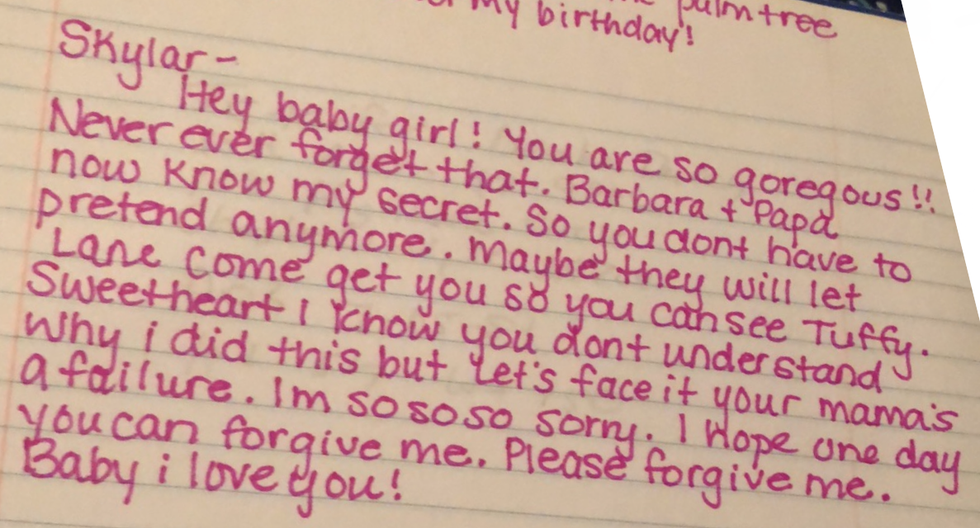 palmtree
my birthday!
Skylar-
Hey baby girl! You are so goregous!!
Never ever forget that. Barbara + Papa
now know my secret. So you dont have to
pretend anymore. Maybe they will let
Lane come get you so you can see Tuffy.
Sweetheart I know you dont understand
Why i did this but let's face it your mama's
a failure. Im so so so sorry. I Hope one day
you can forgive me. Please forgive me.
Baby i love you!